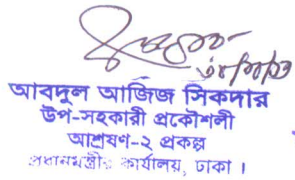 আবদুল আজিজ সিকদার
উপ-সহকারী প্রকৌশলী
আশ্রয়ণ-২ প্রকল্প
প্রধানমন্ত্রীর কার্যালয়, ঢাকা ।